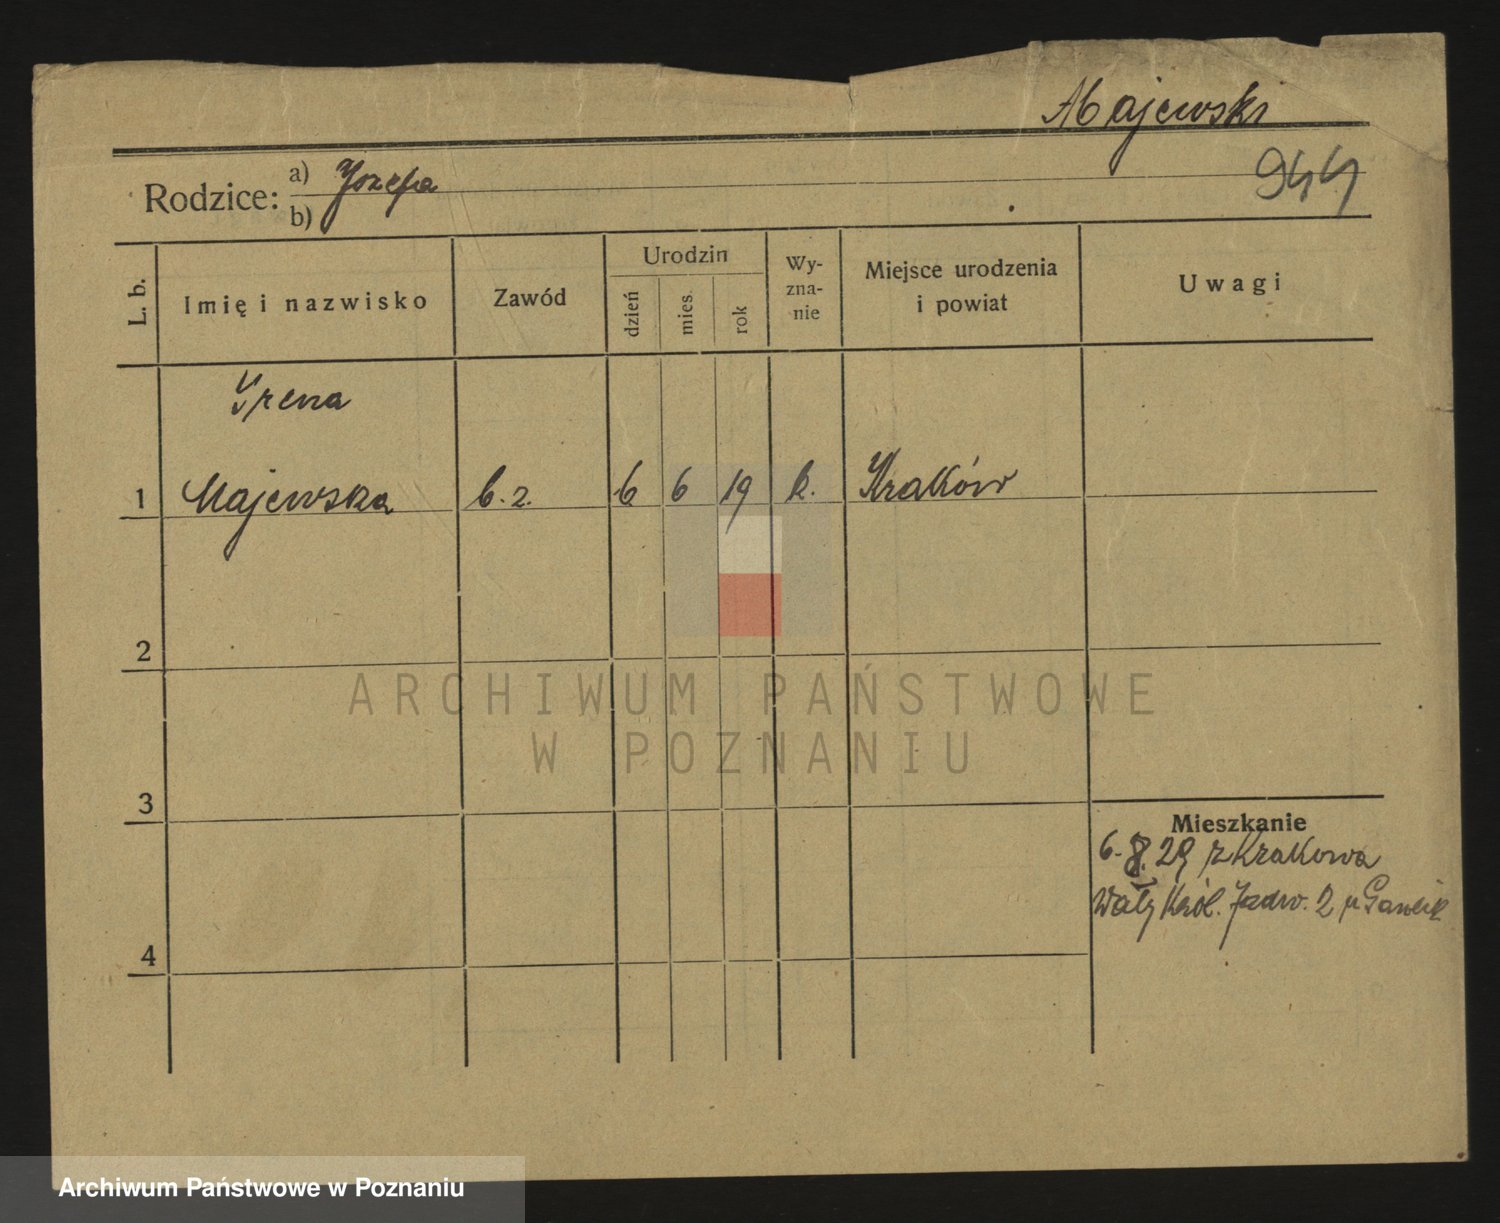 Majewski
944
Rodzice: a) Józefa
b)
L. b.
Imię i nazwisko
Zawód
Urodzin
dzień
mies.
rok
Wy-
zna-
nie
Miejsce urodzenia
i powiat
Uwagi
Irena
1 Majewska b. z. 6 6 19 k. Kraków
2
3
4
Mieszkanie
6.8.29 z Krakowa
Wały Król. Jadw. 2 u
ARCHIWUM PAŃSTWOWE
W POZNANIU
Archiwum Państwowe w Poznaniu